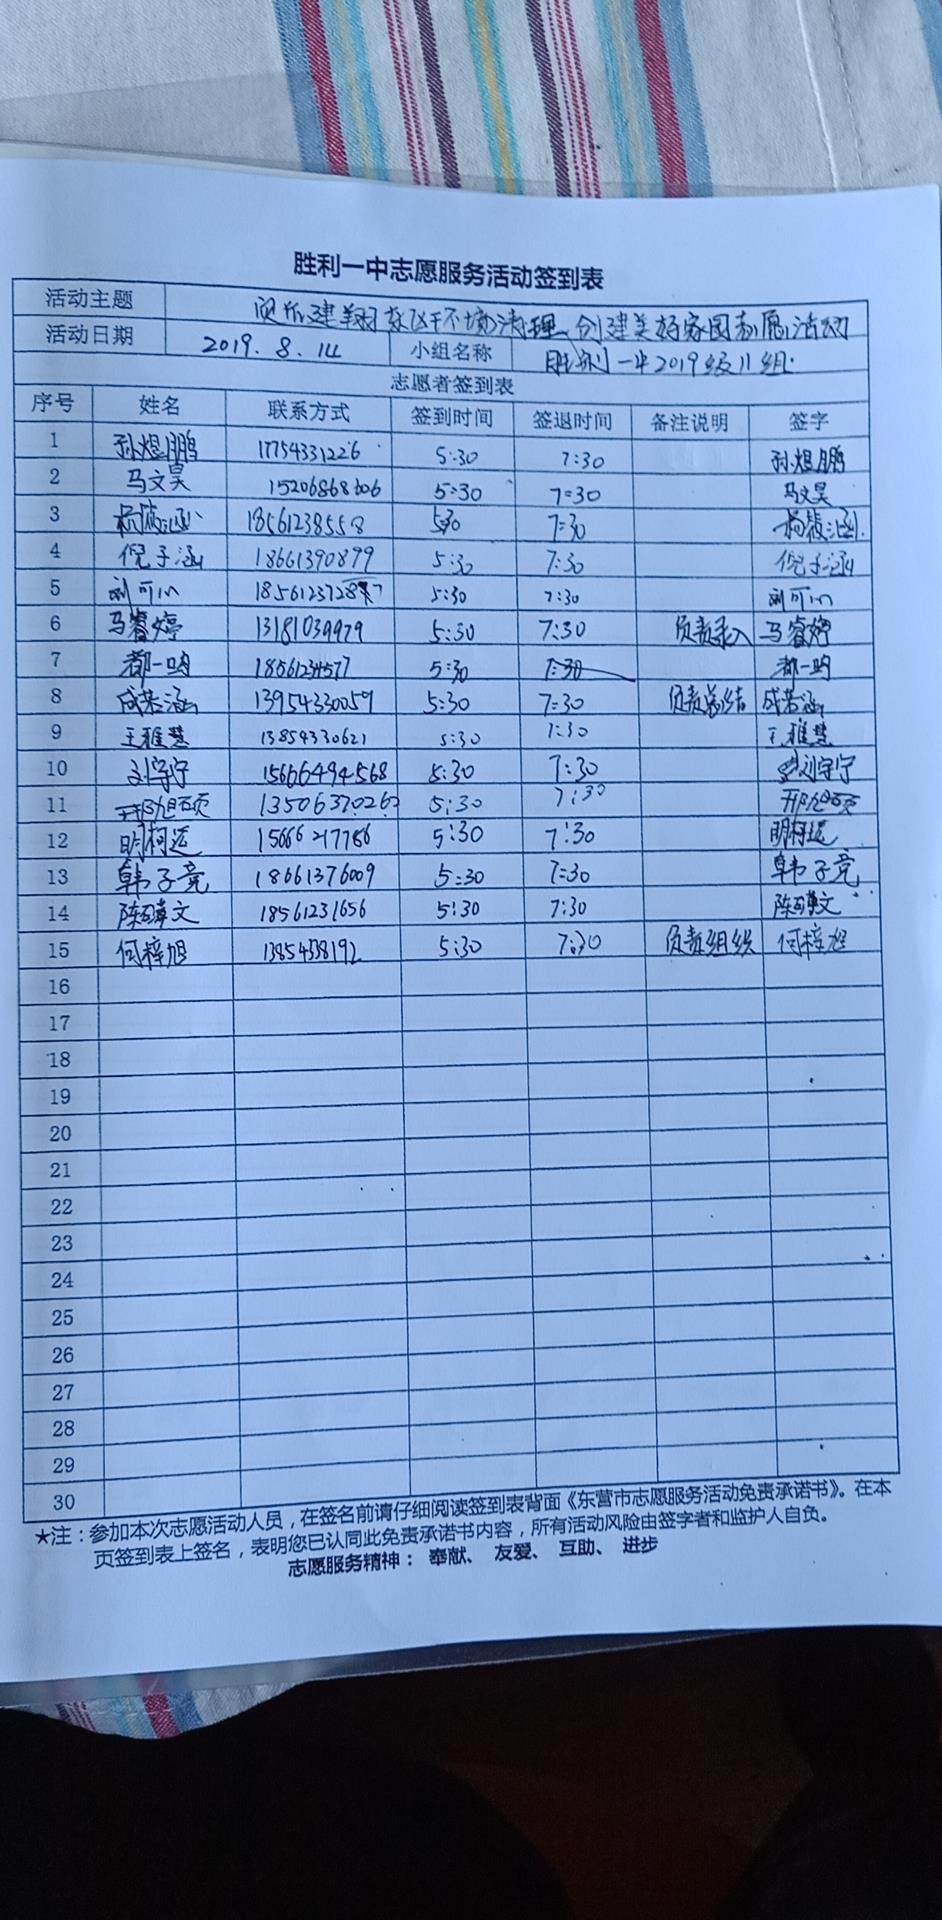 胜利一中志愿服务活动签到表
活动主题 建翔 环境清理、创建美好家园志愿活动
活动日期 2019.8.14 小组名称 胜利一中2019级11组
志愿者签到表
序号 姓名 联系方式 签到时间 签退时间 备注说明 签字
1 孙煜鹏 17754331226 5:30 7:30 孙煜鹏
2 马文昊 15206868606 5:30 7:30 马文昊
3 18561238558 5:30 7:30
4 倪子涵 18661390899 5:30 7:30 倪子涵
5 刘可心 5:30 7:30 刘可心
6 马睿婷 13181039979 5:30 7:30 负责录入 马睿婷
7 都一鸣 18561234577 5:30 7:30 都一鸣
8 成若涵 13954330059 5:30 7:30 负责总结 成若涵
9 王雅慧 13854330621 5:30 7:30 王雅慧
10 刘宇宁 15666494568 5:30 7:30 刘宇宁
11 13506370262 5:30 7:30
12 明柯廷 15666217786 5:30 7:30 明柯廷
13 韩子竞 18661376009 5:30 7:30 韩子竞
14 18561231656 5:30 7:30
15 何梓旭 1385458192 5:30 7:30 负责组织 何梓旭
16
17
18
19
20
21
22
23
24
25
26
27
28
29
30
★注：参加本次志愿活动人员，在签名前请仔细阅读签到表背面《东营市志愿服务活动免责承诺书》。在本
页签到表上签名，表明您已认同此免责承诺书内容，所有活动风险由签字者和监护人自负。
志愿服务精神： 奉献、 友爱、 互助、 进步